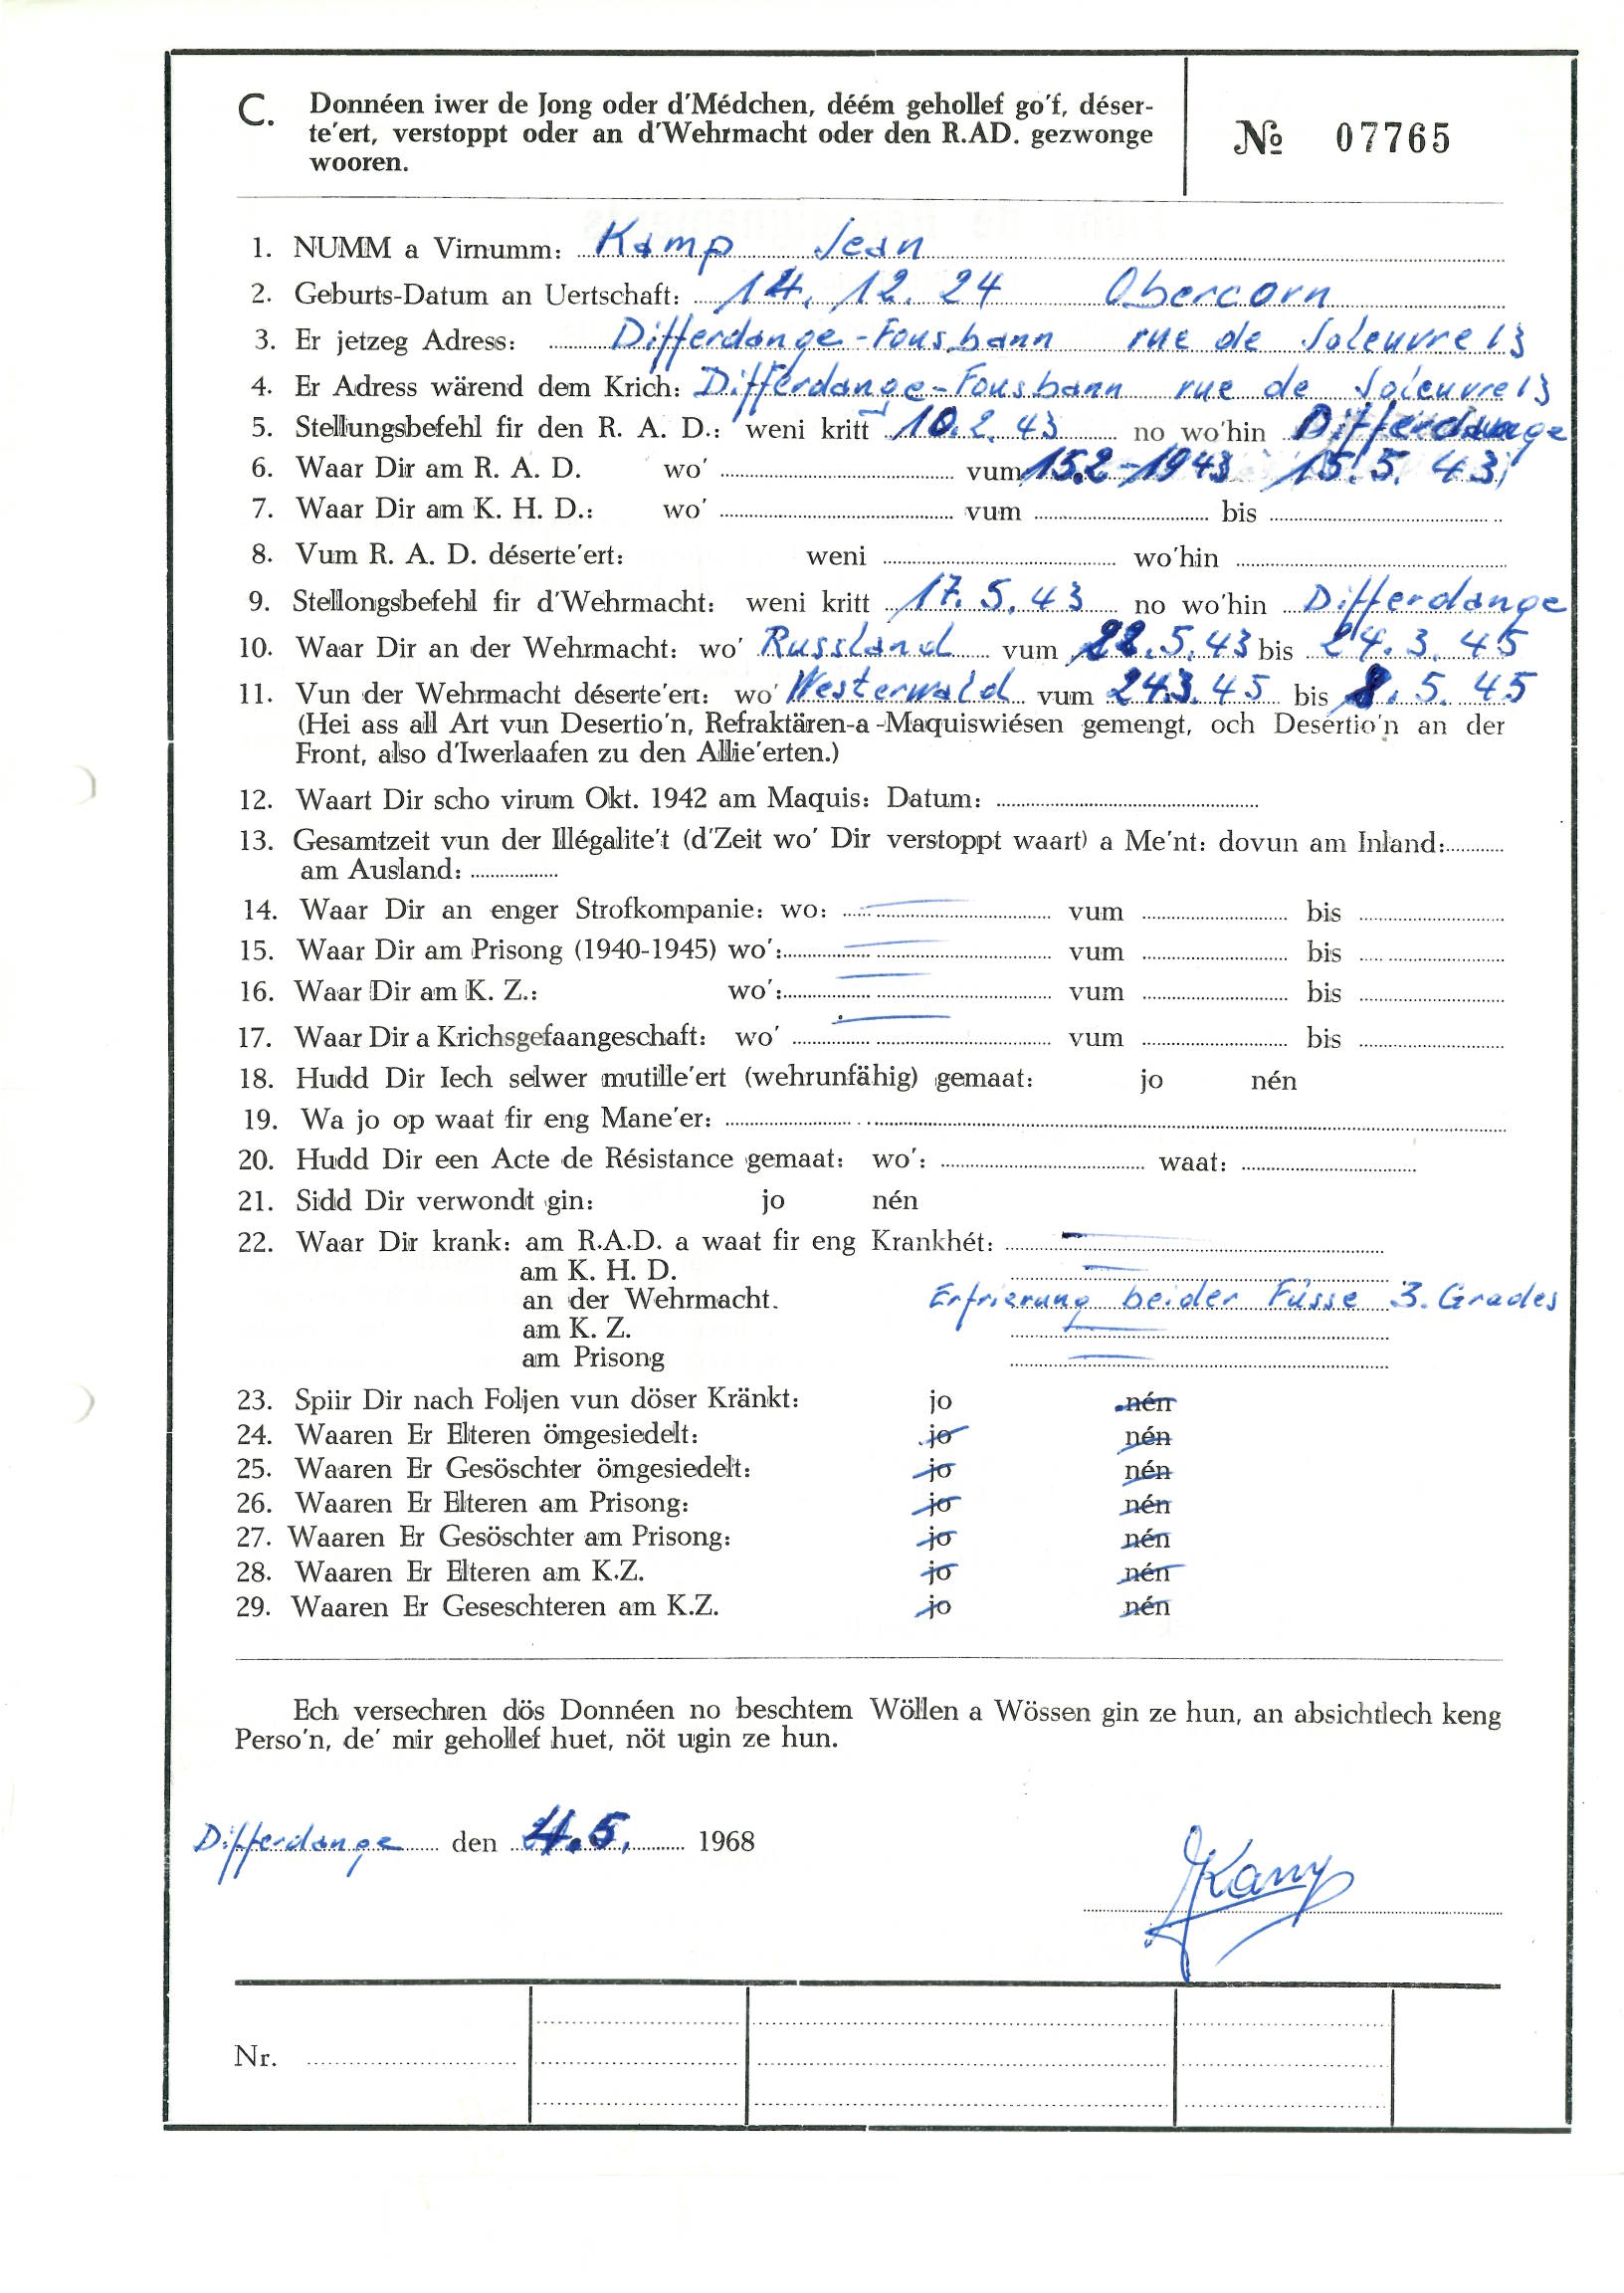 C. Donnéen iwer de Jong oder d'Médchen, déém gehollef go'f, déser-
te'ert, verstoppt oder an d'Wehrmacht oder den R.AD. gezwonge
wooren.
№ 07765
1. NUMM a Virnumm: Kamp Jean
2. Geburts-Datum an Uertschaft: 14. 12. 24 Obercorn
3. Er jetzeg Adress: Differdange-Fousbann rue de Soleuvre 13
4. Er Adress wärend dem Krich: Differdange-Fousbann rue de Soleuvre 13
5. Stellungsbefehl fir den R. A. D.: weni kritt 10.2.43 no wo'hin Differdange
6. Waar Dir am R. A. D. wo' vum 15.2-1943 15.5.43
7. Waar Dir am K. H. D.: wo' vum bis
8. Vum R. A. D. déserte'ert: weni wo'hin
9. Stellongsbefehl fir d'Wehrmacht: weni kritt 17.5.43 no wo'hin Differdange
10. Waar Dir an der Wehrmacht: wo' Russland vum 22.5.43 bis 24.3.45
11. Vun der Wehrmacht déserte'ert: wo' Westerwald vum 24.3.45 bis 8.5.45
(Hei ass all Art vun Desertio'n, Refraktären-a-Maquiswiésen gemengt, och Desertio'n an der
Front, also d'Iwerlaafen zu den Allie'erten.)
12. Waart Dir scho virum Okt. 1942 am Maquis: Datum:
13. Gesamtzeit vun der Illégalite't (d'Zeit wo' Dir verstoppt waart) a Me'nt: dovun am Inland:
am Ausland:
14. Waar Dir an enger Strofkompanie: wo: vum bis
15. Waar Dir am Prisong (1940-1945) wo': vum bis
16. Waar Dir am K. Z.: wo': vum bis
17. Waar Dir a Krichsgefaangeschaft: wo' vum bis
18. Hudd Dir Iech selwer mutille'ert (wehrunfähig) gemaat: jo nén
19. Wa jo op waat fir eng Mane'er:
20. Hudd Dir een Acte de Résistance gemaat: wo': waat:
21. Sidd Dir verwondt gin: jo nén
22. Waar Dir krank: am R.A.D. a waat fir eng Krankhét:
am K. H. D.
an der Wehrmacht. Erfrierung beider Füsse 3. Grades
am K. Z.
am Prisong
23. Spiir Dir nach Foljen vun döser Kränkt: jo nén
24. Waaren Er Elteren ömgesiedelt: jo nén
25. Waaren Er Gesöschter ömgesiedelt: jo nén
26. Waaren Er Elteren am Prisong: jo nén
27. Waaren Er Gesöschter am Prisong: jo nén
28. Waaren Er Elteren am K.Z. jo nén
29. Waaren Er Geseschteren am K.Z. jo nén
Ech versechren dös Donnéen no beschtem Wöllen a Wössen gin ze hun, an absichtlech keng
Perso'n, de' mir gehollef huet, nöt ugin ze hun.
Differdange den 4.5. 1968
JKamp
Nr.